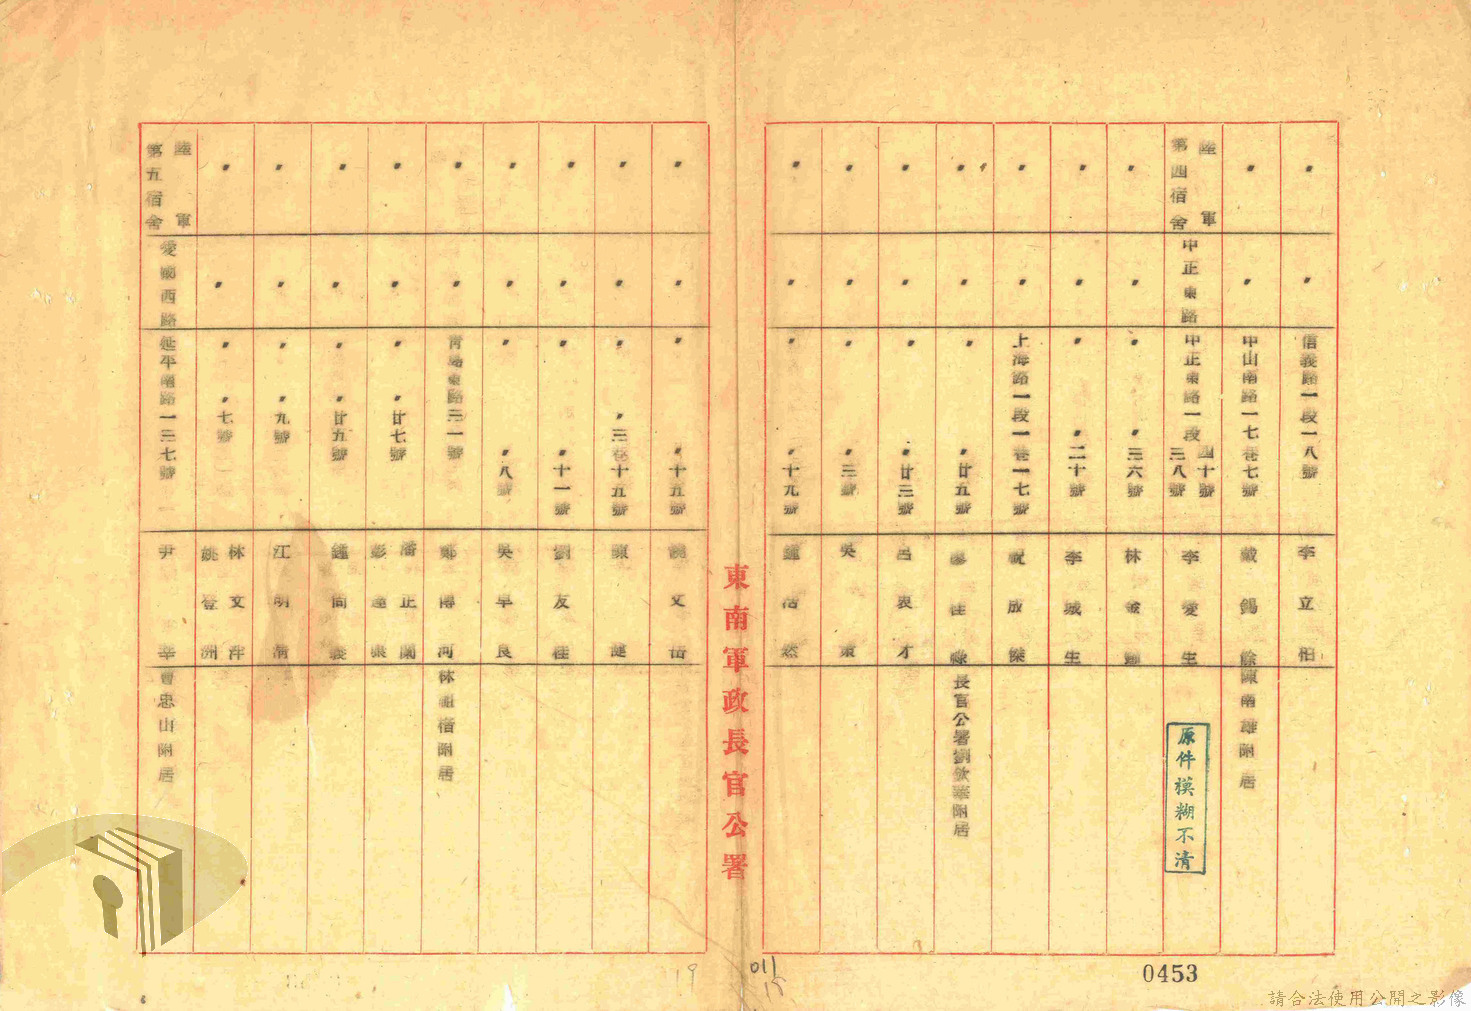 〃 〃 信義路一段一八號 李立柏
〃 〃 中山南路一七巷七號 戴錫 陳南雄附居
陸軍第四宿舍 中正東路 中正東路一段四十號三八號 李愛生
〃 〃 〃 〃三六號 林金
〃 〃 〃 〃二十號 李城生
〃 〃 上海路一段一巷一七號 祝成傑
〃 〃 〃 〃廿五號 廖 長官公署劉欽華附居
〃 〃 〃 〃廿三號 呂衷才
〃 〃 〃 〃三號 吳
〃 〃 〃 〃十九號 鍾浩然
東南軍政長官公署
〃 〃 〃 〃十五號 文
〃 〃 〃 〃三巷十五號 陳
〃 〃 〃 〃十一號 劉友
〃 〃 〃 〃八號 吳卓良
〃 〃 青島東路三一號 鄭傳河 林祖榴附居
〃 〃 〃 〃廿七號 潘正蘭 彭
〃 〃 〃 〃廿五號 鍾尚義
〃 〃 〃 〃九號 江明清
〃 〃 〃 〃七號 林文萍 姚登洲
陸軍第五宿舍 愛國西路 延平南路一三七號 尹莘 曾忠山附居
原件模糊不清
19
011
15
0453
請合法使用公開之影像